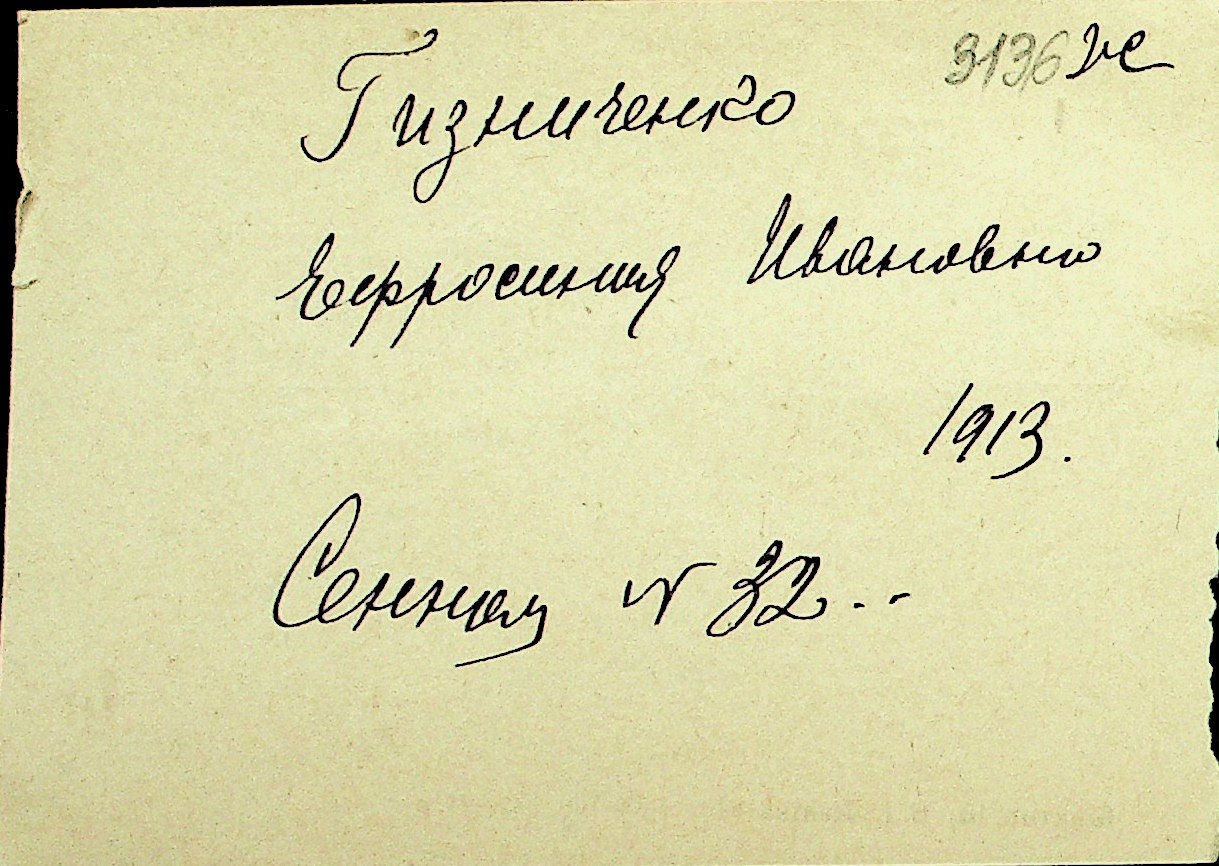 3136 ис
Гизниченко
Ефросиния Ивановна
1913.
Сенной N 32..